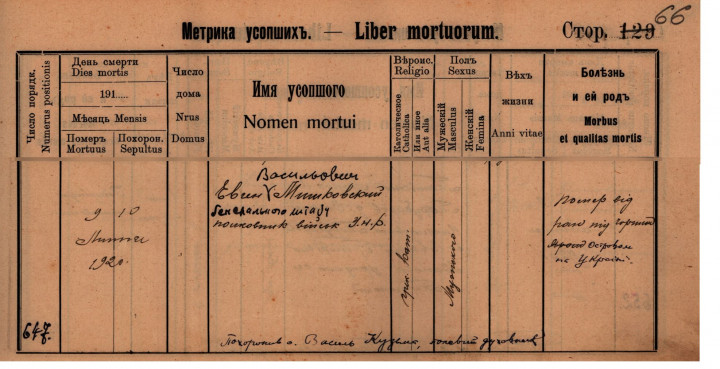 66
Метрика усопшихъ. — Liber mortuorum. Стор. 129
Число порядк.
Numerus positionis
День смерти
Dies mortis
191.....
Мѣсяць Mensis
Помер
Mortuus
Похорон.
Sepultus
Число
дома
Nrus
Domus
Имя усопшого
Nomen mortui
Вѣроис.
Religio
Католическое
Catholica
Или иное
Aut alia
Полъ
Sexus
Мужескій
Masculus
Женскій
Femina
Вѣхъ
жизни
Anni vitae
Болѣзнь
и ей родъ
Morbus
et qualitas mortis
647
9 10
Липня
1920
Васильович
Евген Мишковский
Генерального штабу
полковник війск У.н.р.
грик. кат.
Мужеского
Помер від
ран під
Островом
на Украіні.
Похоронив о. Василь Кузьма, полевий духовник